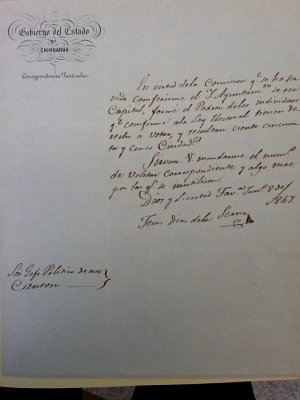 Gobierno del Estado
DE
CHIHUAHUA
Correspondencia Particular.
En virtud de la Comicion qe. se ha ser
vido comferirme el Y. Ayuntamto. de esa
Capital, formé el Padron de los individuos
qe. comforme á la Ley Electoral tienen de
recho a votar, y resultan ciento cincuen
ta y cinco Ciudads.
Sirvan V. mandarme el numo.
de Voletas correspondiente y algo mas,
por las qe. se inutilisen.
Dios y Livertad Junio 8 de
1857.
Dias de la Serna
Sor. Gefe Politico de este
Canton